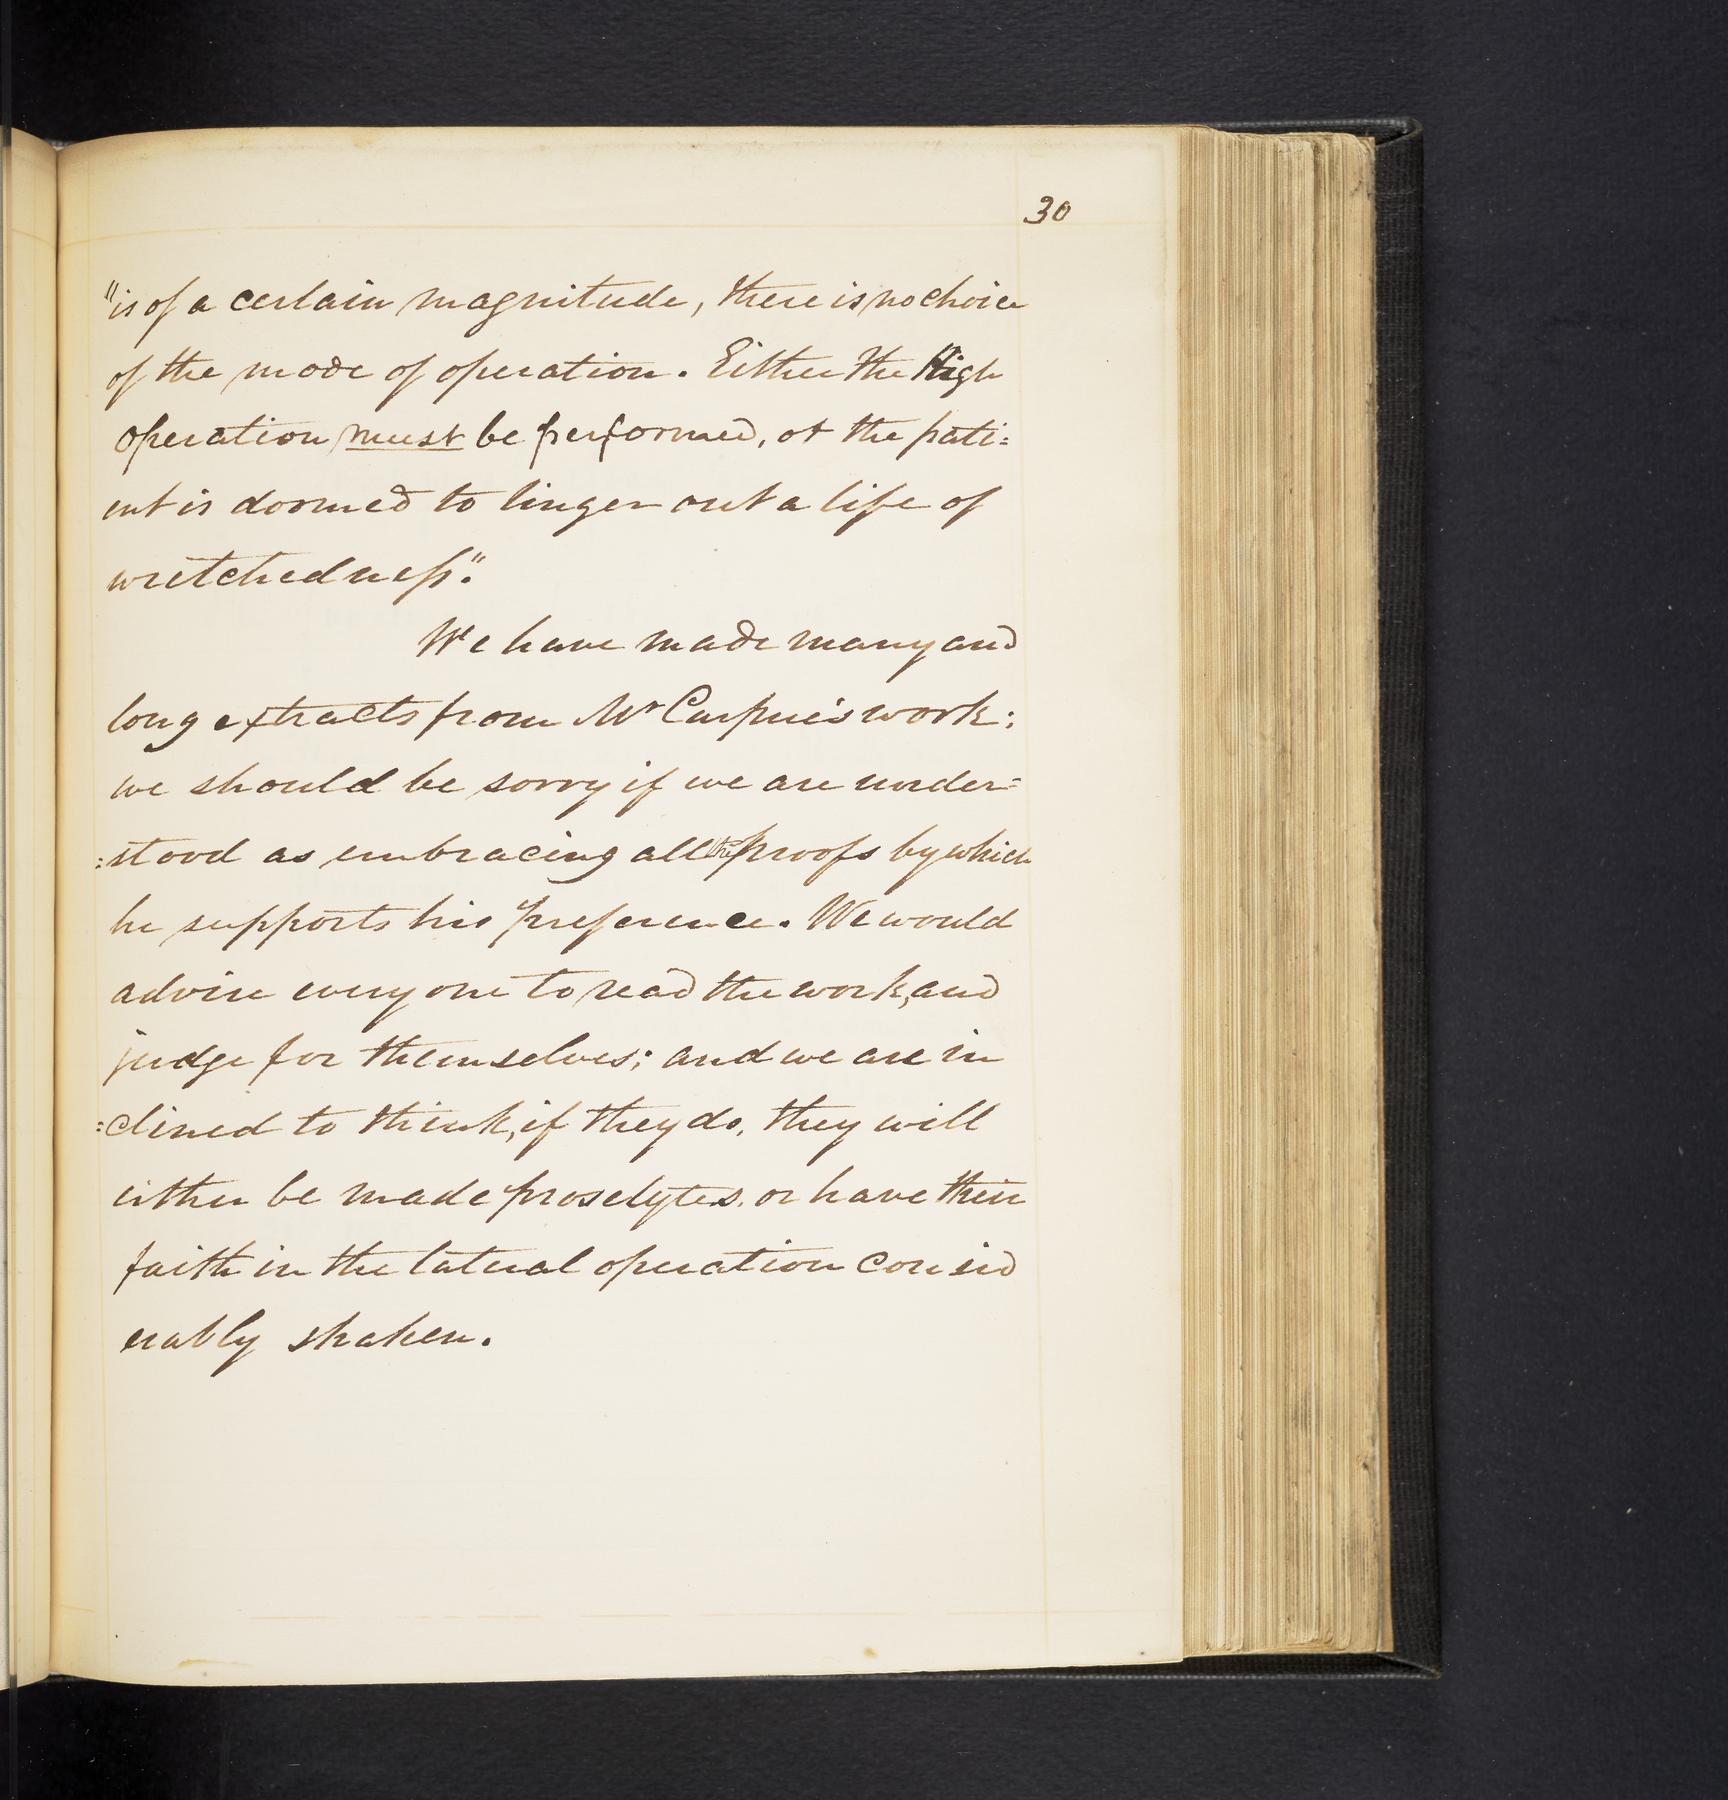 30
"is of a certain magnitude, there is no choice
of the mode of operation. Either the High
operation must be performed, or the pati=
ent is doomed to linger out a life of
wretchedness".
We have made many and
long extracts from Mr Carpue's work;
we should be sorry if we are under=
=stood as embracing all the proofs by which
he supports his preference. We would
advise every one to read the work, and
judge for themselves; and we are in
=clined to think, if they do, they will
either be made proselytes, or have their
faith in the lateral operation consid
erably shaken.